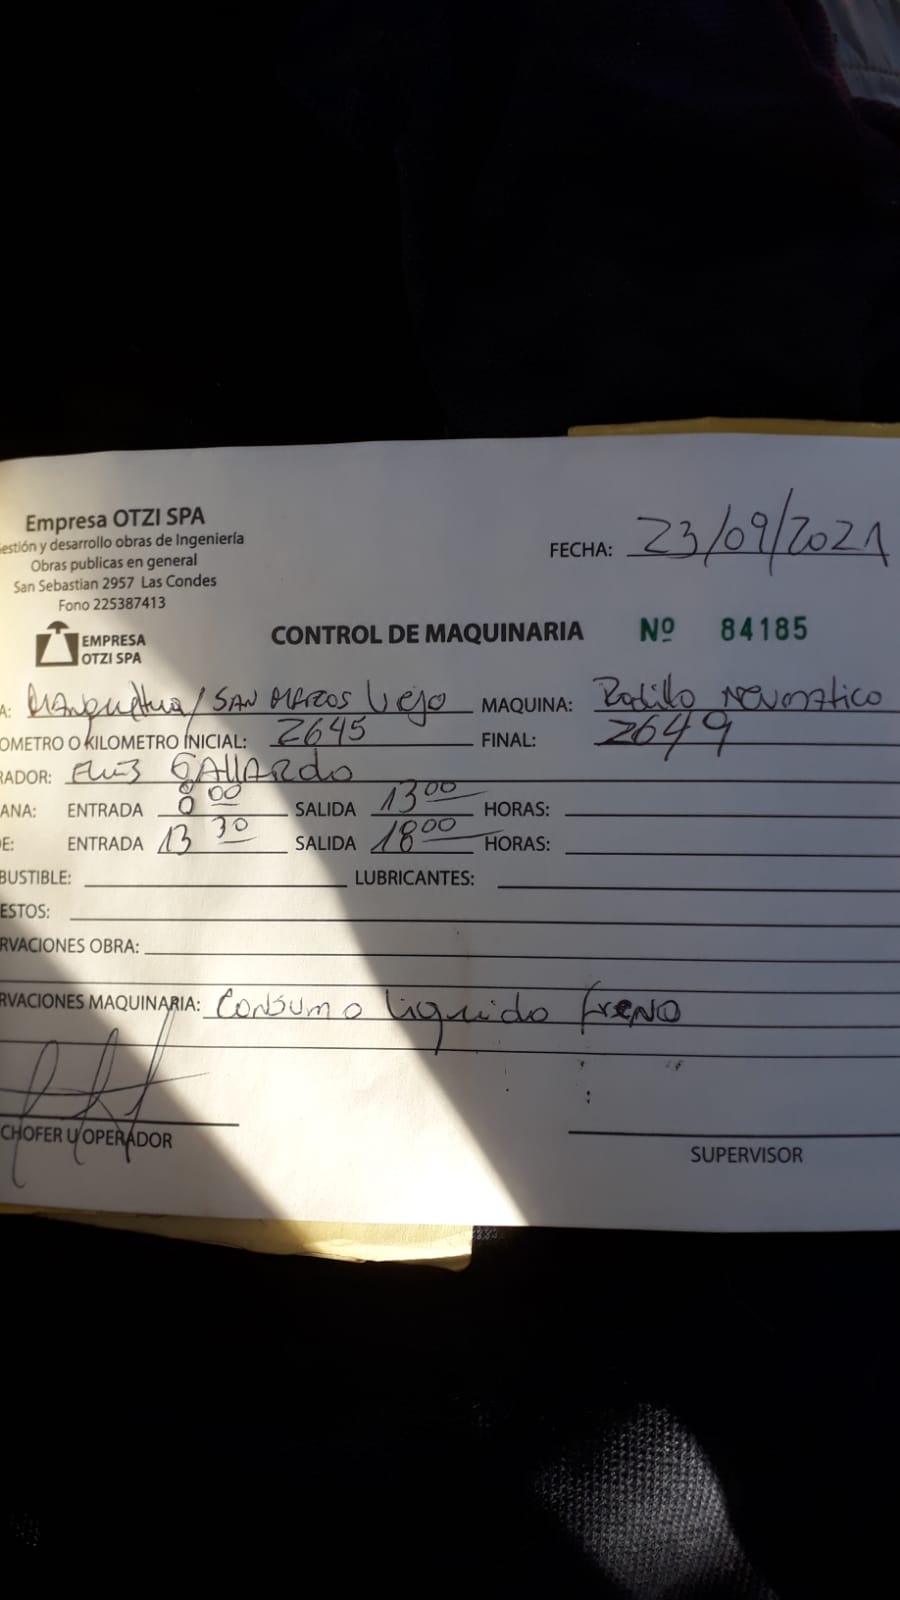 Empresa OTZI SPA
estión y desarrollo obras de Ingeniería
Obras publicas en general
San Sebastian 2957 Las Condes
Fono 225387413
FECHA: 23/09/2021
EMPRESA
OTZI SPA
CONTROL DE MAQUINARIA Nº 84185
A: / SAN Marcos Viejo MAQUINA: Rodillo Neumatico
OMETRO O KILOMETRO INICIAL: 2645 FINAL: 2649
RADOR: GALLARdo
ANA: ENTRADA 8 00 SALIDA 13 00 HORAS:
E: ENTRADA 13 30 SALIDA 18 00 HORAS:
BUSTIBLE: LUBRICANTES:
ESTOS:
RVACIONES OBRA:
RVACIONES MAQUINARIA: Consumo liquido freno
CHOFER U OPERADOR
SUPERVISOR